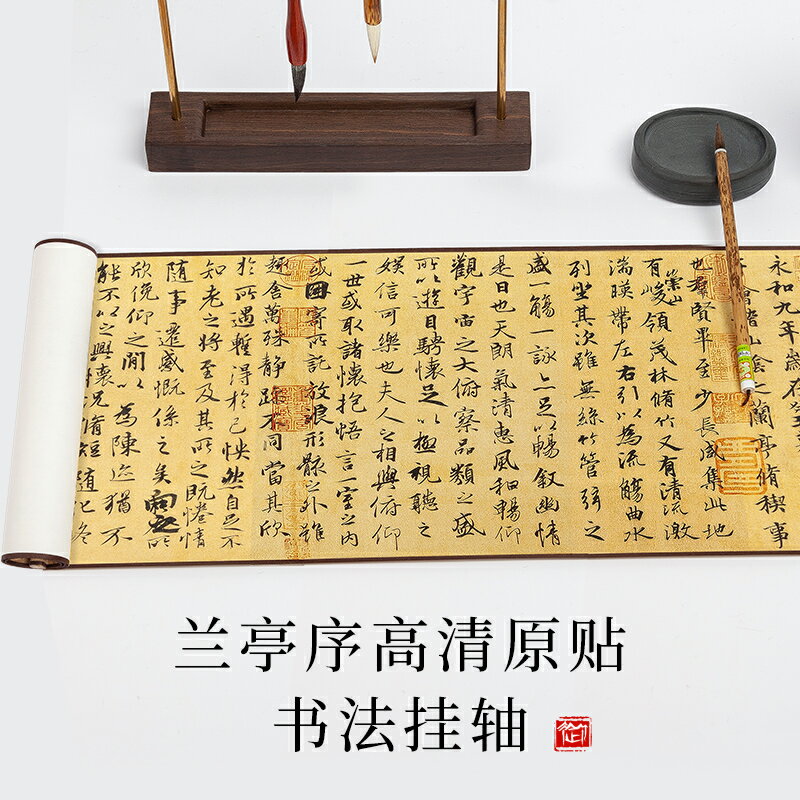 永和九年歲在
會稽山陰之蘭亭脩稧事
也羣賢畢至少長咸集此地
有崇山峻領茂林脩竹又有清流激
湍暎帶左右引以為流觴曲水
列坐其次雖無絲竹管弦之
盛一觴一詠亦足以暢敘幽情
是日也天朗氣清惠風和暢仰
觀宇宙之大俯察品類之盛
所以遊目騁懷足以極視聽之
娛信可樂也夫人之相與俯仰
一世或取諸懷抱悟言一室之內
或因寄所託放浪形骸之外雖
趣舍萬殊靜躁不同當其欣
於所遇蹔得於己怏然自足不
知老之將至及其所之既惓情
隨事遷感慨係之矣向之所
欣俛仰之閒以為陳迹猶不
能不以之興懷況脩短隨化終
兰亭序高清原贴
书法挂轴